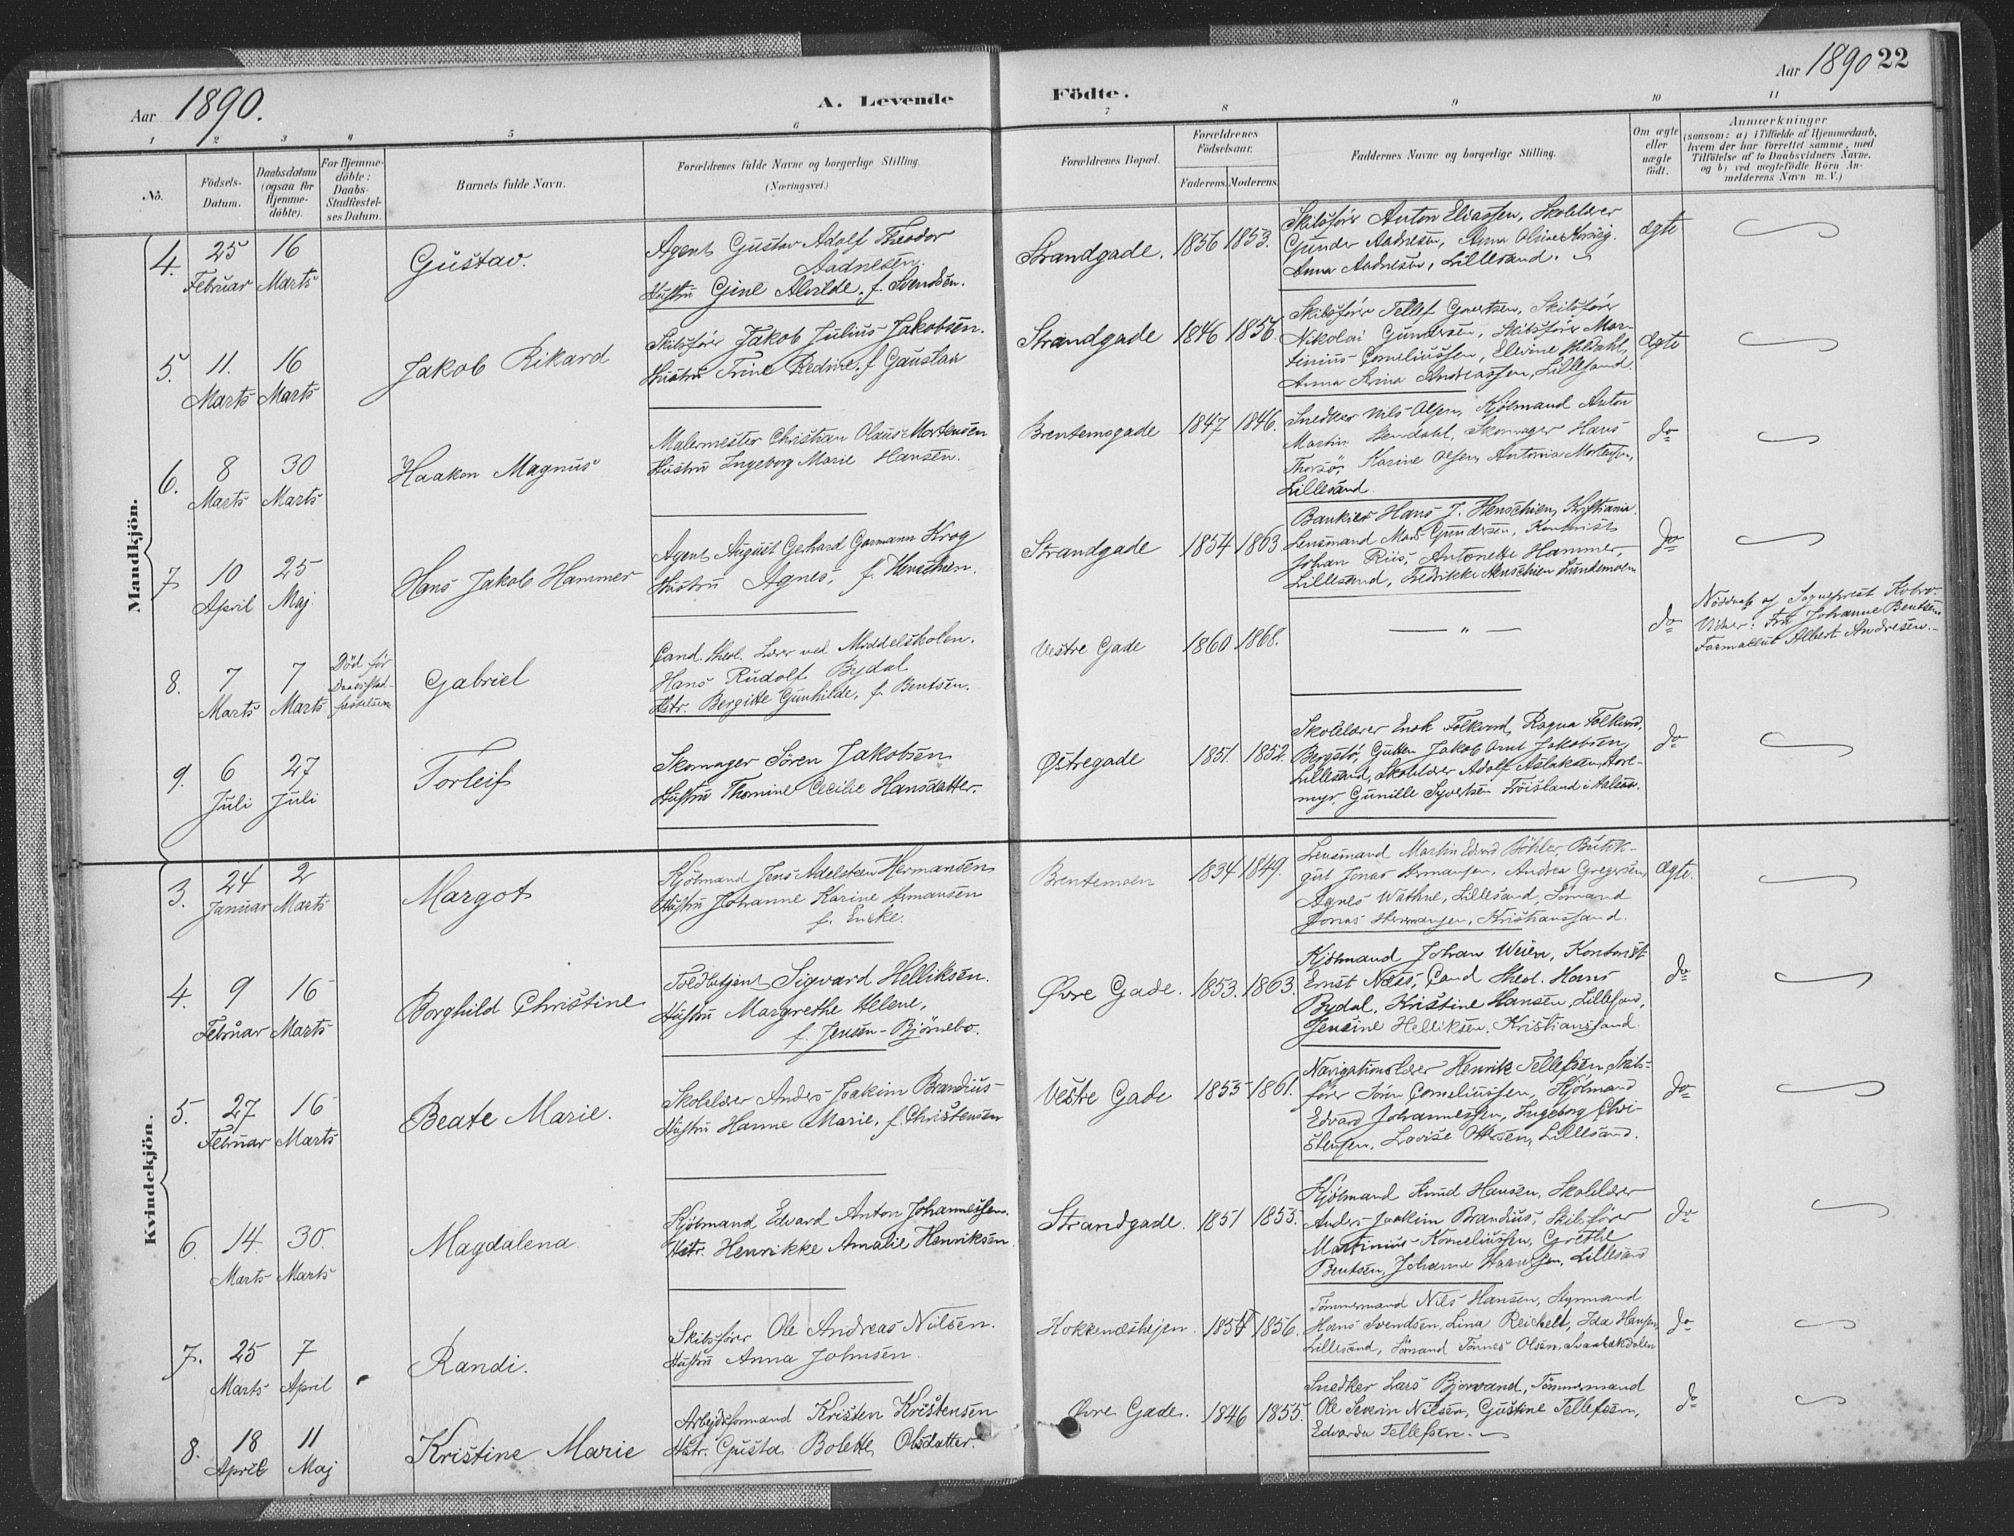 Aar 1890.
A. Levende
Födte.
Aar 1890 22
1 2 3 4 5 6 7 8 9 10 11
No.
Födsels-
Datum.
Daabsdatum
(ogsaa for
Hjemme-
döbte).
For Hjemme-
döbte:
Daabs-
Stadfæstel-
ses Datum.
Barnets fulde Navn.
Forældrenes fulde Navne og borgerlige Stilling.
(Næringsvei.)
Forældrenes Bopæl.
Forældrenes
Födselsaar.
Faderens. Moderens.
Faddernes Navne og borgerlige Stilling.
Om ægte
eller
uægte
födt.
Anmærkninger
(saasom: a) i Tilfælde af Hjemmedaab,
hvem der har forrettet samme, med
Tilföielse af to Daabsvidners Navne,
og b) ved uægtefödte Börn An-
melderens Navn m. V.)
Mandkjön.
4. 25 Februar 16 Marts
Gustav.
Agent Gustav Adolf Theodor
Aadnesen.
Hustru Gine Alvilde, f. Svendsen.
Strandgade. 1856 1853.
Skibsfører Anton Eliassen, Skolelærer
Gunder Aadnesen, Anna Oline
Anna Aadnesen, Lillesand.
ægte
5. 11. Marts 16 Marts
Jakob Rikard
Skibsfører Jakob Julius Jakobsen.
Hustru Trine Redine, f. Gaustad
Strandgade 1846 1856.
Skibsfører Tellef Skibsfører
Nikolai Gundersen, Skibsfører Mar-
tinius Corneliussen, Elevine
Anna Andreassen, Lillesand
ægte
6. 8 Marts 30 Marts
Haakon Magnus
Malermester Christian Olaus Mortensen
Hustru Ingeborg Marie Hansen.
Brentemogade 1847 1846.
Snedker Nils Olsen, Kjøbmand Anton
Martin Skomager Hans
Karine Olsen, Antonia Mortensen,
Lillesand.
do
7 10 April 25 Maj
Hans Jakob Hammer
Agent August Gerhard Garmann Krog
Hustru Agnes, f. Henschien.
Strandgade 1854 1863
Bankier Hans J. Henschien, Kristiania.
Lensmand Mads Gundersen, Kontorist
Johan Riis, Antonette Hammer,
Lillesand, Fredrikke Henschien Lundemoen
do
8. 7 Marts 7 Marts
Død før
Daabsstad-
fæstelsen
Gabriel
Cand. theol. Lærer ved Middelskolen.
Hans Rudolf Bydal
Hstr. Bergitte Gunhilde, f. Bentsen.
Vestre Gade 1860 1868.
— " —
do
Nøddaab af Sognepræst Kobro.
Vidner: Fru Johanne Bentsen
Farmaceut Albert Andresen.
9. 6 Juli 27 Juli
Torleif
Skomager Søren Jakobsen
Hustru Thomine Cecilie Hansdatter.
Østregade 1851. 1852.
Skolelærer Enok Folkvord, Ragna Folkvord,
Bergstø, Gutten Jakob Arnt Jakobsen
Lillesand, Skolelærer Adolf Aslaksen, Aore-
myr, Gunille Syvertsen Frøisland i
do
Kvindekjön.
3. 24 Januar 2 Marts
Margot
Kjøbmand Jens Adelsteen Hermansen
Hustru Johanne Karine Hermansen
f. Enske.
Brentemoen 1834 1849.
Lensmand Martin Edvard Bøhler, Butik-
Jonas Hermansen, Andrea Gregersen,
Agnes Wathne, Lillesand, Sømand
Jonas Hermansen, Kristianssand.
Ægte.
4. 9 Februar 16 Marts
Borghild Christine
Toldbetjent Sigvard Helliksen.
Hustru Margrethe Helene,
f. Jensen-Bjørnebo.
Øvre Gade. 1853. 1863.
Kjøbmand Johan Weien, Kontorist
Ernst Næss, Cand. theol. Hans
Bydal, Kristine Hansen, Lillesand,
Jensine Helliksen, Kristianssand.
do
5. 27 Februar 16 Marts
Beate Marie.
Skolelærer Anders Joakim Brandius
Hustru Hanne Marie, f. Christensen
Vestre Gade 1855 1861.
Navigationslærer Henrik Tellefsen, Skibs-
fører Søren Corneliussen, Kjøbmand
Edvard Johannessen, Ingeborg Chri-
stensen, Lovise Ottesen, Lillesand.
do
6. 14 Marts 30. Marts
Magdalena
Kjøbmand Edvard Anton Johannessen.
Hstr. Henrikke Amalie Henriksen.
Strandgade. 1851 1855.
Kjøbmand Knud Hansen, Skolelærer
Anders Joakim Brandius, Skibsfører
Martinius Korneliussen, Grethe
Bentsen, Johanne Lillesand
do
7. 25 Marts 7 April
Randi.
Skibsfører Ole Andreas Nilsen.
Hustru Anna Johnsen.
Kokkenæshejen. 1854 1856.
Tømmermand Nils Hansen, Styrmand
Hans Svendsen, Lina Reichelt, Ida Hansen,
Lillesand, Sømand Tønnes Olsen,
do
8. 18 April 11 Maj
Kristine Marie
Arbejdsformand Kristen Kristensen
Hstr. Gusta Bolette Olsdatter.
Øvre Gade. 1846 1855.
Snedker Lars Bjorvand, Tømmermand
Ole Severin Nilsen, Gustine Tellefsen,
Edvarda Tellefsen.
do